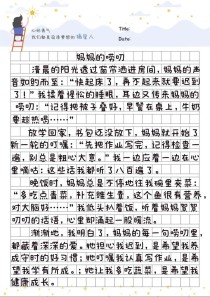 心怀勇气
Title:
Date:
妈妈的唠叨
清晨的阳光透过窗帘洒进房间，妈妈的声
音如约而至：“快起床了，再不起来就要迟到
了！”我揉着惺忪的睡眼，耳边又传来妈妈的
唠叨：“记得把被子叠好，早餐在桌上，牛奶
要趁热喝……”
放学回家，书包还没放下，妈妈就开始了
新一轮的叮嘱：“先把作业写完，记得检查一
遍，别总是粗心大意。”我一边应着一边在心
里嘀咕：这些话我都听了八百遍了。
晚饭时，妈妈总是不停地往我碗里夹菜：
“多吃点青菜，补充维生素，这个鱼很有营养，
对大脑好……”我低头扒着饭，听着妈妈絮絮
叨叨的话语，心里却涌起一股暖流。
渐渐地，我明白了，妈妈的每一句唠叨里，
都藏着深深的爱。她担心我迟到，是希望我养
成守时的好习惯；她叮嘱我认真写作业，是希
望我学有所成；她让我多吃蔬菜，是希望我
健康成长。